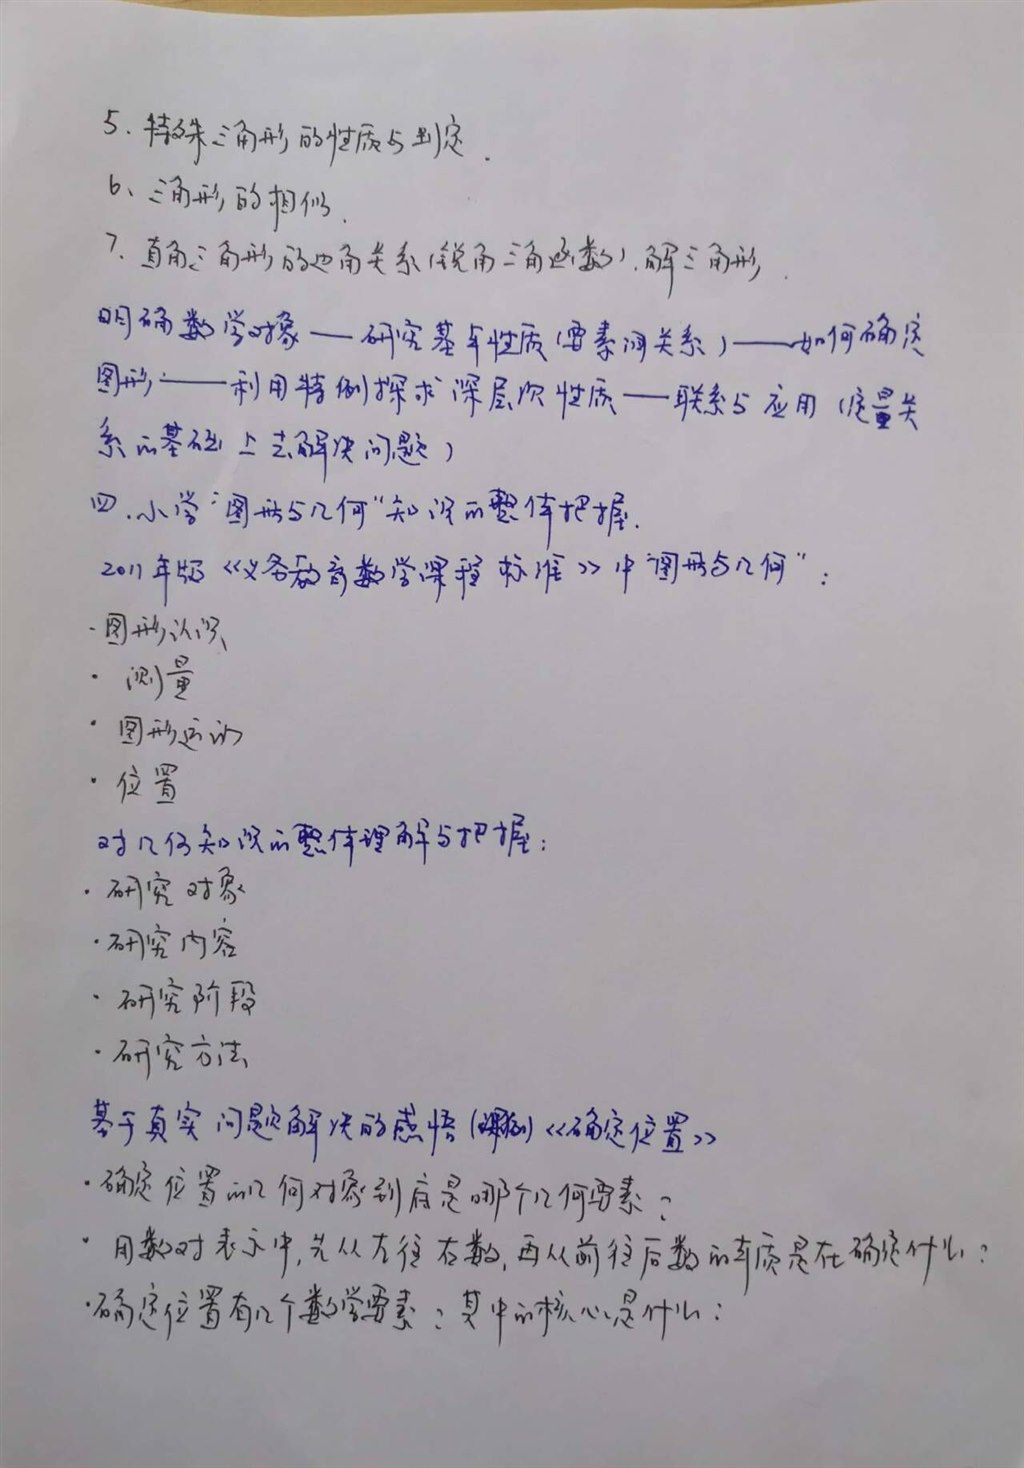 5、特殊三角形的性质与判定.
6、三角形的相似.
7、直角三角形的边角关系(锐角三角函数).解三角形.
明确数学对象——研究基本性质(要素间关系)——如何确定
图形——利用特例探求深层次性质——联系与应用(定量关
系的基础上去解决问题)
四.小学“图形与几何”知识的整体把握.
2011年版《义务教育数学课程标准》中“图形与几何”:
·图形认识
·测量
·图形运动
·位置
对几何知识的整体理解与把握:
·研究对象
·研究内容
·研究阶段
·研究方法
基于真实问题解决的感悟(课例)《确定位置》
·确定位置的几何对象到底是哪个几何要素?
·用数对表示中,先从左往右数,再从前往后数的本质是在确定什么?
·确定位置有几个数学要素?其中的核心是什么?